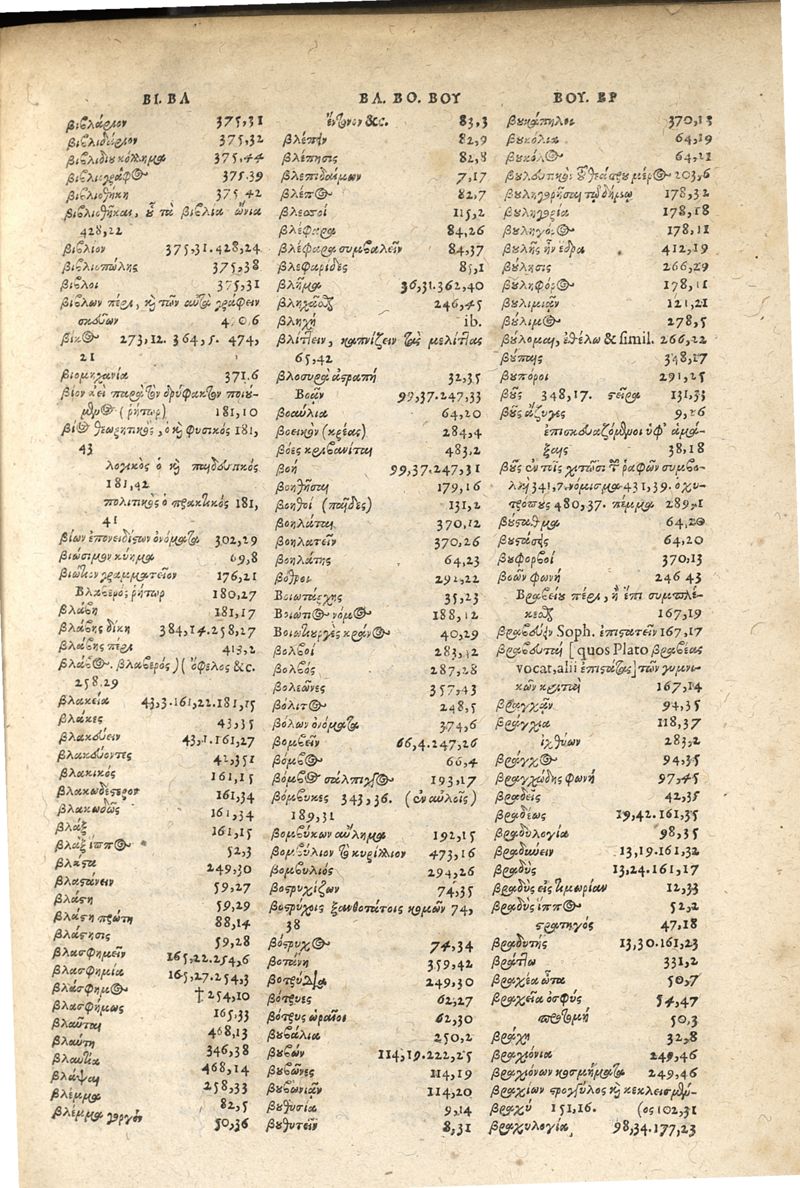 ΒΙ. ΒΛ
βιβλάριον 375,31
βιβλιδάριον 375,32
βιβλιδιουκόλλημα 375.44
βιβλιογράφος 375.39
βιβλιοθήκη 375 42
βιβλιοθῆκαι, οὗ τὰ βιβλία ὤνια
428,22
βιβλίον 375,31.428,24
βιβλιοπώλης 375,38
βίβλοι 375,31
βίβλων πέρι, καὶ τῶν αὐτὰ γράφειν
σκευῶν
βίκος 273,12. 364,5. 474,
21
βιομηχανία 371.6
βίον ἀεὶ παρὰ τὸν δρύφακτον ποιου-
μενος (ῥήτωρ) 181,10
βίος θεωρητικὸς, ὁ καὶ φυσικός 181,
43
λογικὸς ὁ καὶ παιδευτικός
181,42
πολιτικὸς ὁ πρακτικός 181,
41
βίων ἐπονειδίστων ὀνόματα 302,29
βιώσιμον κύημα 69,8
βιώτιον γραμματεῖον 176,21
Βλαβερὸς ῥήτωρ 180,27
βλάβη 181,17
βλάβης δίκη 384,14.258,27
βλάβης πέρι 413,2
βλάβος. βλαβερός)( ὄφελος &c.
258.29
βλακεία 43,3.161,22.181,15
βλάκες 43,35
βλακεύειν 43,1.161,27
βλακεύοντες 42,351
βλακικός 161,15
βλακωδέστερον 161,34
βλακωδῶς 161,34
βλάξ 161,15
βλὰξ ἵππος 52,3
βλάστα 249,30
βλαστάνειν 59,27
βλάστη 59,29
βλάστη πρώτη 88,14
βλάστησις 59,28
βλασφημεῖν 165,22.254,6
βλασφημία 165,27.254,3
βλάσφημος †254,10
βλασφήμως 165.33
βλαῦται 468,13
βλαύτη 346,38
βλαυτία 468,14
βλάψαι 258,33
βλέμμα 82,5
βλέμμα γοργόν 50,36
ΒΛ. ΒΟ. ΒΟΥ
ἔντονον &c. 83,3
βλέπειν 82,9
βλέπησις 82,8
βλεπεδαίμων 7,17
βλέπος 82,7
βλεστοί 115,2
βλέφαρα 84,26
βλέφαρα συμβαλεῖν 84,37
βλεφαρίδες 85,1
βλῆμα 36,31.362,40
246,45
βληχή ib.
βλίττειν, καπνίζειν τὰς μελίττας
65,42
βλοσυρὰ ἀστραπή 32,35
Βοᾶν 99,37.247,33
βοαύλια 64,20
βοεικὸν (κρέας) 284,4
βόες κριβανίται 483,2
βοή 99,37.247,31
βοηθῆσαι 179,16
βοηθοί (παῖδες) 131,2
βοηλάται 370,12
βοηλατεῖν 370,26
βοηλάτης 64,23
βόθροι 291,22
Βοιωτάρχης 35,23
Βοιώτιος νόμος 188,12
Βοιωτιουργὲς κράνος 40,29
βολβοί 283,12
βολβός 287,28
βολεῶνες 357,43
βόλιτος 248,5
βόλων ὀνόματα 374,6
βομβεῖν 66,4.247,26
βόμβος 66,4
βόμβος σάλπιγγος 193,17
βόμβυκες 343,36. (ἐν αὐλοῖς)
189,31
βομβύκων αὔλημα 192,15
βομβύλιον τὸ κυρίλλιον 473,16
βομβυλιός 294,26
βοστρυχίζων 74,35
βοστρύχοις ξανθοτάτοις κομῶν 74,
38
βόστρυχος 74,34
βοτάνη 359,42
βοτρύδια 249,30
βότρυες 62,27
βότρυς ὡραῖοι 62,30
βουβάλια 250,2
βουβών 114,19.222,25
βουβῶνες 114,19
βουβωνιᾶν 114,20
βουθυσία 9,14
βουθυτεῖν 8,31
ΒΟΥ. ΒΡ
βουκάπηλοι 370,13
βουκόλια 64,19
βουκόλος 64,21
βουλευτικὸν τοῦ θεάτρου μέρος 203,6
βουληγορῆσαι τῷ δήμῳ 178,32
βουληγορία 178,18
βουληγόρος 178,11
βουλῆς ἦν ἕδρα 412,19
βούλησις 266,29
βουληφόρος 178,11
βουλιμιᾶν 121,21
βούλιμος 278,5
βούλομαι, ἐθέλω & simil. 266,22
βούπαις 348,17
βουπόροι 291,25
βοῦς 348,17. στεῖρα 131,33
βοῦς ἄζυγες 9,26
ἐπισκευαζόμενοι ὑφ' ἁμά-
ξαις 38,18
βοῦς ἐν τοῖς χιτῶσι τῶν ῥαφῶν συμβο-
λὴ 341,7. νόμισμα 431,39. ὀχυ-
τρόπους 480,37. πέμμα 289,1
βούσταθμα 64,20
βουστάσεις 64,20
βουφορβοί 370,13
βοῶν φωνή 246 43
Βραβείου πέρι, ἢ ἐπὶ συμπλέ-
κειν 167,19
βραβεύειν Soph. ἐπιστατεῖν 167,17
βραβευταί [quos Plato βραβέας
vocat, alii ἐπιστάτας] τῶν γυμνι-
κῶν κριταί 167,14
βραγχᾶν 94,35
βράγχια 118,37
ἰχθύων 283,2
βράγχος 94,35
βραγχώδης φωνή 97,45
βραδεῖς 42,35
βραδέως 19,42.161,35
βραδυλογία 98,35
βραδύνειν 13,19.161,32
βραδὺς 13,24.161,17
βραδὺς εἰς τιμωρίαν 12,33
βραδὺς ἵππος 52,2
στρατηγός 47,18
βραδυτής 13,30.161,23
βράττω 331,2
βραχέα ὦτα 50,7
βραχεῖα ὀσφύς 54,47
προτομή 50,3
βράχη 32,8
βραχιόνια 249,46
βραχιόνων κοσμήματα 249,46
βραχίων στρογγύλος καὶ κεκλεισμέν-
βραχύ 151,16. (ος 102,31
βραχυλογία 98,34.177,23